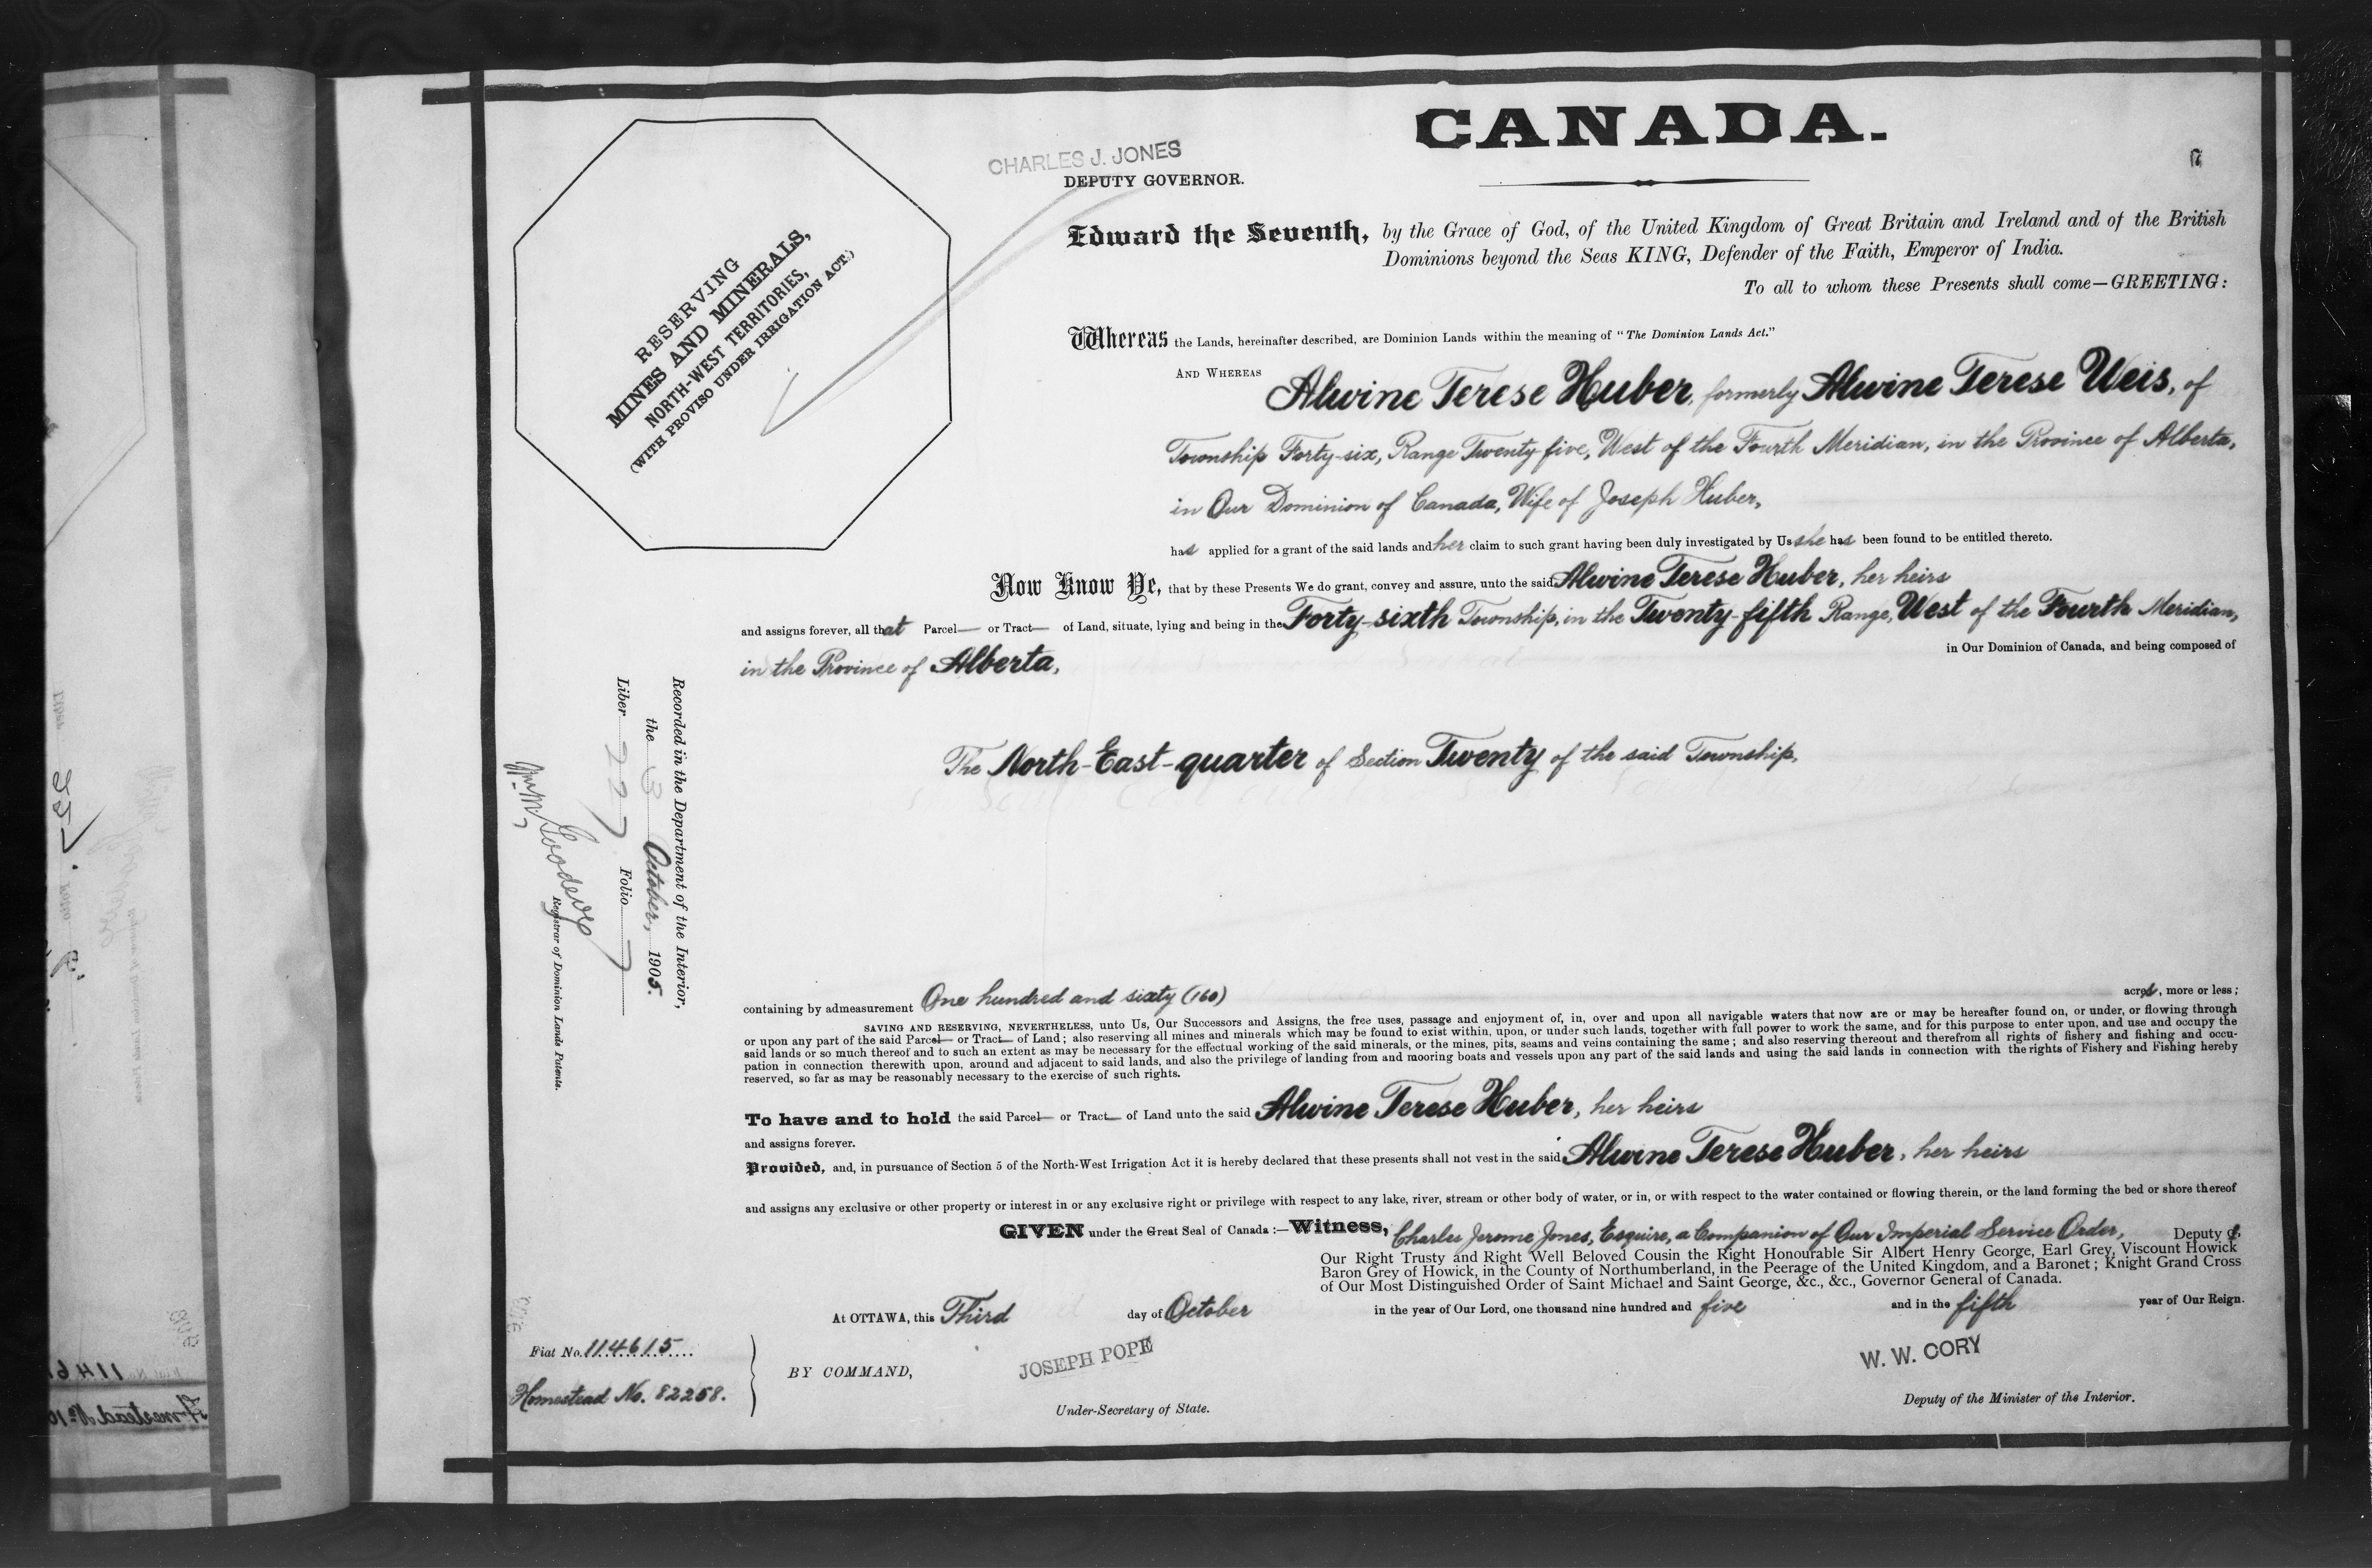 CANADA.
CHARLES J. JONES
DEPUTY GOVERNOR.
7
RESERVING
MINES AND MINERALS,
NORTH-WEST TERRITORIES,
(WITH PROVISO UNDER IRRIGATION ACT.)
Edward the Seventh, by the Grace of God, of the United Kingdom of Great Britain and Ireland and of the British
Dominions beyond the Seas KING, Defender of the Faith, Emperor of India.
To all to whom these Presents shall come—GREETING:
Whereas the Lands, hereinafter described, are Dominion Lands within the meaning of "The Dominion Lands Act."
AND WHEREAS Alwine Terese Huber, formerly Alwine Terese Weis, of
Township Forty-six, Range Twenty-five, West of the Fourth Meridian, in the Province of Alberta,
in Our Dominion of Canada, Wife of Joseph Huber,
has applied for a grant of the said lands and her claim to such grant having been duly investigated by Us she has been found to be entitled thereto.
Now Know Ye, that by these Presents We do grant, convey and assure, unto the said Alwine Terese Huber, her heirs
and assigns forever, all that Parcel— or Tract— of Land, situate, lying and being in the Forty-sixth Township, in the Twenty-fifth Range, West of the Fourth Meridian,
in the Province of Alberta, in Our Dominion of Canada, and being composed of
The North-East-quarter of Section Twenty of the said Township,
Recorded in the Department of the Interior,
the 3 October, 1905.
Liber 227 Folio 7
Wm M. Goodeve
Registrar of Dominion Lands Patents.
containing by admeasurement One hundred and sixty (160) acres, more or less;
SAVING AND RESERVING, NEVERTHELESS, unto Us, Our Successors and Assigns, the free uses, passage and enjoyment of, in, over and upon all navigable waters that now are or may be hereafter found on, or under, or flowing through
or upon any part of the said Parcel— or Tract— of Land; also reserving all mines and minerals which may be found to exist within, upon, or under such lands, together with full power to work the same, and for this purpose to enter upon, and use and occupy the
said lands or so much thereof and to such an extent as may be necessary for the effectual working of the said minerals, or the mines, pits, seams and veins containing the same; and also reserving thereout and therefrom all rights of fishery and fishing and occu-
pation in connection therewith upon, around and adjacent to said lands, and also the privilege of landing from and mooring boats and vessels upon any part of the said lands and using the said lands in connection with the rights of Fishery and Fishing hereby
reserved, so far as may be reasonably necessary to the exercise of such rights.
To have and to hold the said Parcel— or Tract— of Land unto the said Alwine Terese Huber, her heirs
and assigns forever.
Provided, and, in pursuance of Section 5 of the North-West Irrigation Act it is hereby declared that these presents shall not vest in the said Alwine Terese Huber, her heirs
and assigns any exclusive or other property or interest in or any exclusive right or privilege with respect to any lake, river, stream or other body of water, or in, or with respect to the water contained or flowing therein, or the land forming the bed or shore thereof
GIVEN under the Great Seal of Canada:—Witness, Charles Jerome Jones, Esquire, a Companion of Our Imperial Service Order, Deputy of,
Our Right Trusty and Right Well Beloved Cousin the Right Honourable Sir Albert Henry George, Earl Grey, Viscount Howick
Baron Grey of Howick, in the County of Northumberland, in the Peerage of the United Kingdom, and a Baronet; Knight Grand Cross
of Our Most Distinguished Order of Saint Michael and Saint George, &c., &c., Governor General of Canada.
At OTTAWA, this Third day of October in the year of Our Lord, one thousand nine hundred and five and in the fifth year of Our Reign.
Fiat No. 114615
Homestead No. 82258.
BY COMMAND,
JOSEPH POPE
Under-Secretary of State.
W. W. CORY
Deputy of the Minister of the Interior.